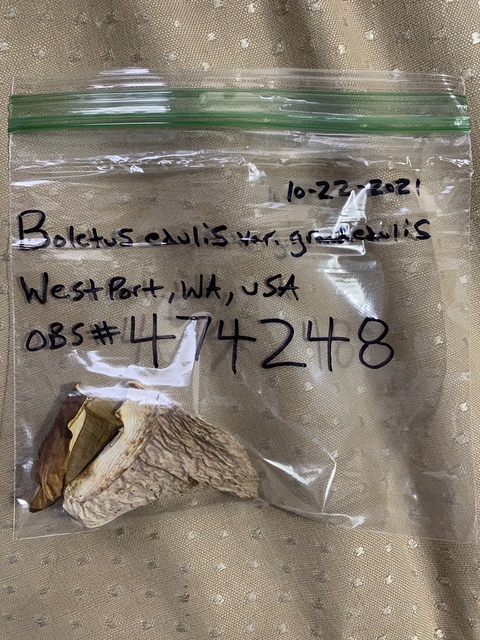 10-22-2021
Boletus edulis var. grandedulis
WestPort, WA, USA
OBS# 474248